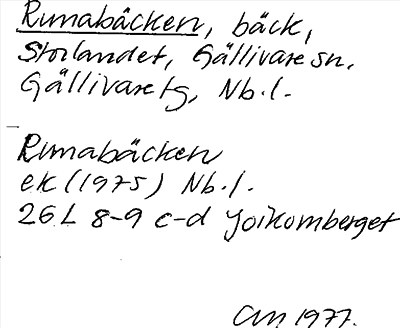 Rimabäcken, bäck,
Storlandet, Gällivare sn.
Gällivare tg, Nb.l.
Rimabäcken
ek (1975) Nb.l.
26L 8-9 c-d Joikomberget
1977.